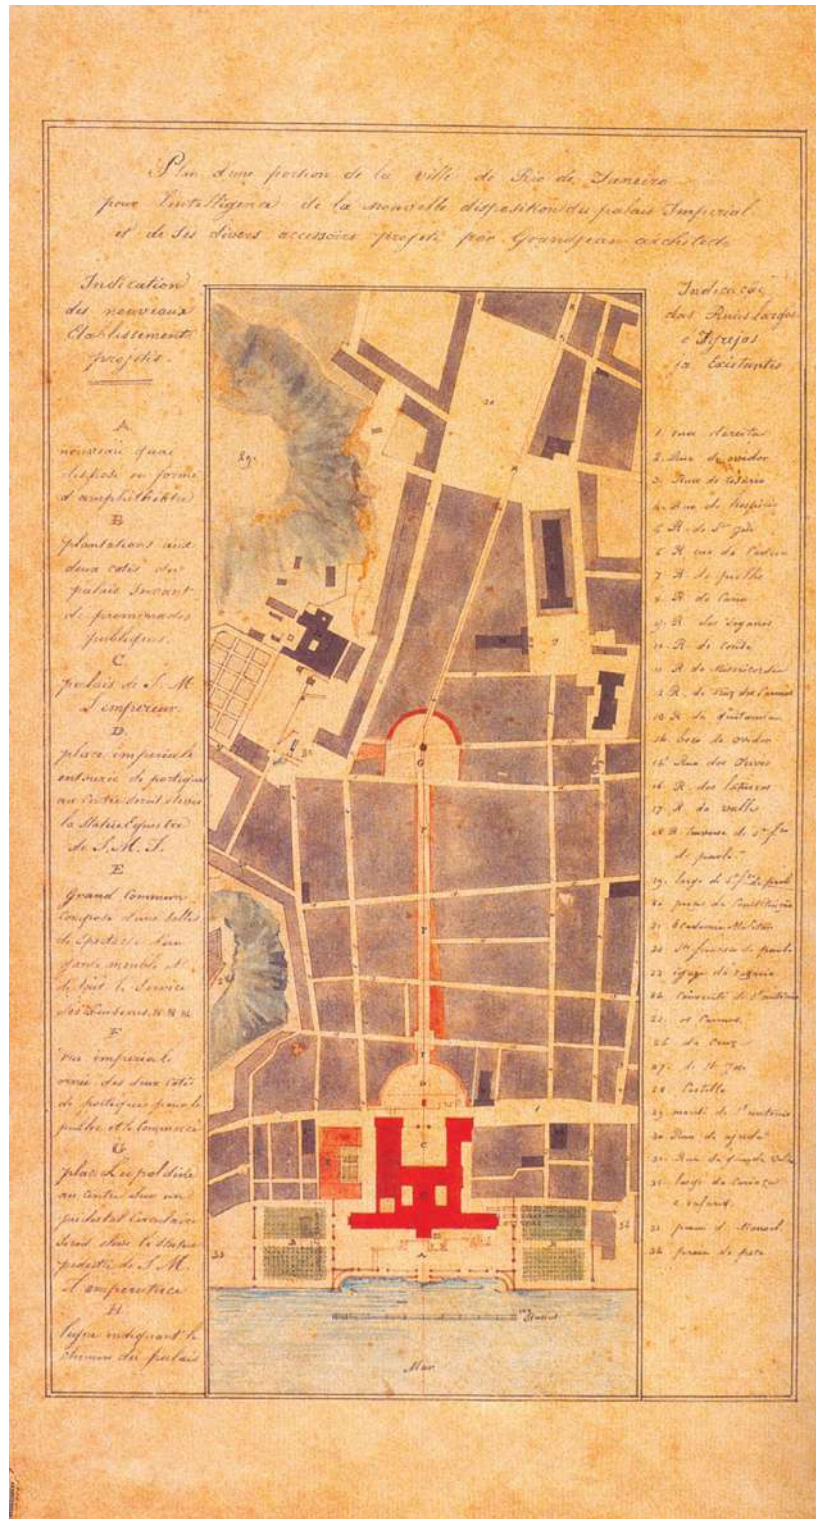 Plan d'une portion de la ville de Rio de Janeiro
pour l'intelligence de la nouvelle disposition du palais Imperial
et de ses divers accessoirs projeté par Grandjean architecte
Indication
des nouveaux
Etablissement
projetés.
A
nouveau quai
disposé en forme
d'amphithéatre
B
plantations aux
deux cotés du
palais servant
de promenades
publiques.
C.
palais de S. M.
L'empereur.
D.
place imperiale
entourée de portiques
au centre serait élevée
la Statue Equestre
de S. M. I.
E
Grand Commun
composé d'une salle
de Spectacle d'un
garde meuble et
de tout le Service
F
rue imperiale
ornée des deux cotés
de portiques pour le
public et le commerce
G
place Leopoldine
au centre sur un
piedestal circulaire
serait élevée la statue
pedestre de S. M.
L'imperatrice
H.
ligne indiquant le
chemin du palais
Indicação
das Ruas largos
e Igrejas
ja Existentes
1. rua direita
2. Rua do ouvidor
3. Rua do rosario
4. Rua do hospicio
5. R. de St. José
6. R. da Cadeia
7. R. do piolho
8. R. do Cano
9. R. dos Siganos
10. R. do Conde
11. R. da Misericordia
12. R. de traz do Carmo
13. R. da quitanda
14. beco do ouvidor
15. Rua dos Ourives
16. R. dos latoeiros
17. R. da valla
18. R. travessa de St. frco
de paula
19. largo de S. frco de paula
20. praça da Constituição
21. Academia Militar
22. St. francisco de paula
23. igreja da
24. Convento de St. antonio
25. os Carmos.
26. da Cruz
27. de St. José
28. Castello
29. monte de St. antonio
30. Rua da ajuda
31. Rua da guarda Velha
32. largo da Carioca
e xafariz.
33. praia d. Manoel
34. praia do peixe
A
B
C
D
E
F
F
G
20
29
32
33
Mar